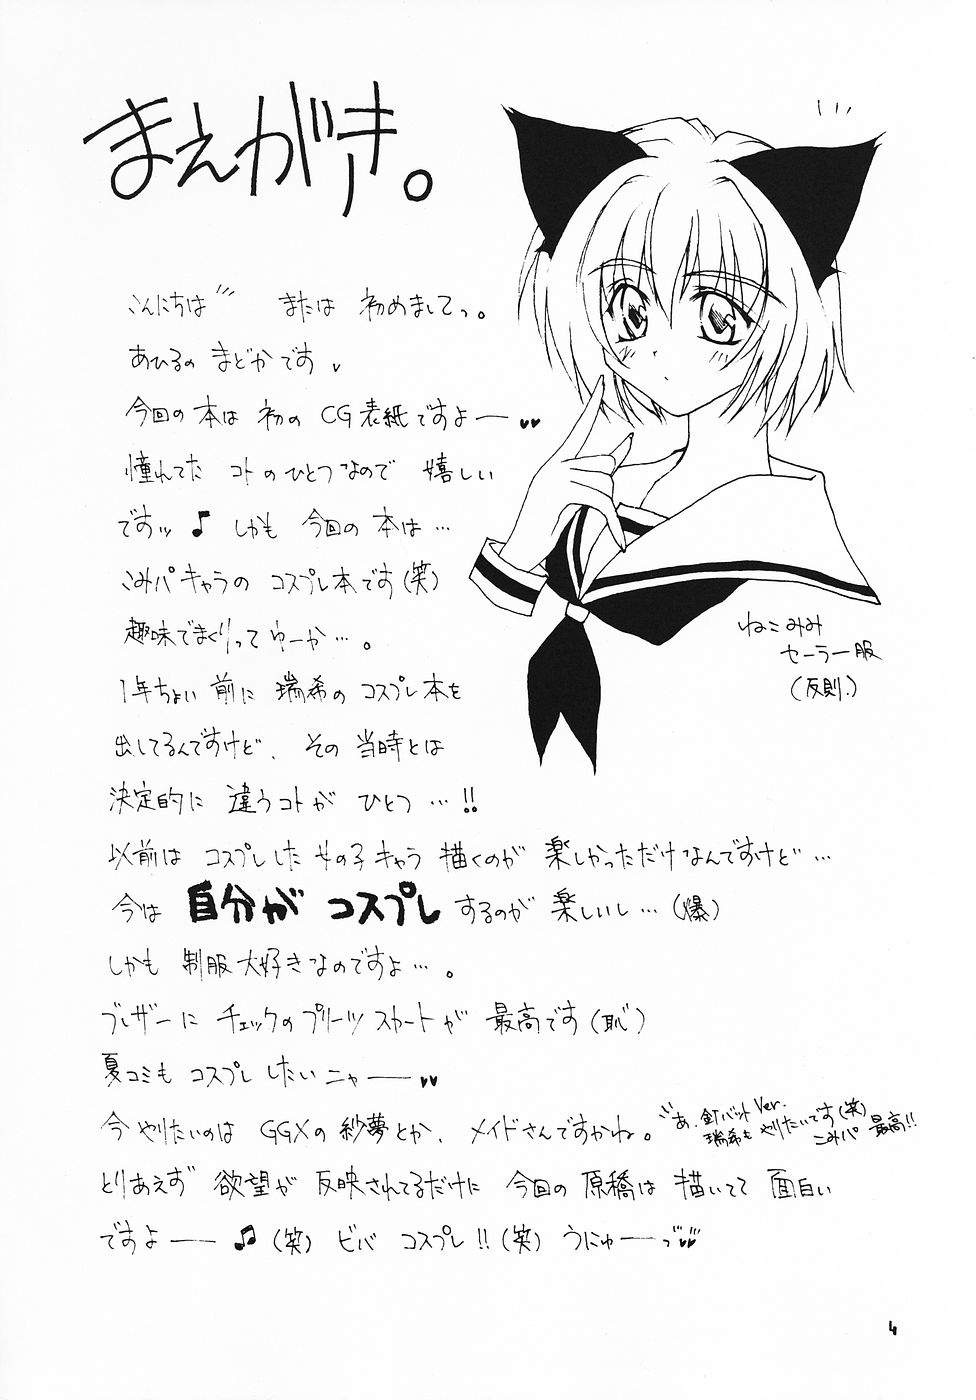 まえがき。
こんにちは゛ または 初めましてっ。
あひるの まどかです
今回の 本は 初の CG表紙ですよー♥♥
憧れてた コトの ひとつなので 嬉しい
ですッ ♪ しかも 今回の 本は…
こみパキャラの コスプレ本です(笑)
趣味でまくりって ゆーか…。
1年ちょい 前に 瑞希の コスプレ本を
出してるんですけど、その 当時とは
決定的に 違うコトが ひとつ…!!
以前は コスプレした 女の子キャラ 描くのが 楽しかっただけなんですけど…
今は 自分が コスプレ するのが 楽しいし…(爆)
しかも 制服大好きなのですよ…。
ブレザーに チェックの プリーツスカートが 最高です(恥)
夏コミも コスプレしたいニャー♥♥
今 やりたいのは GGXの 紗夢とか、メイドさんですかね。
あ、釘バットVer.
瑞希も やりたいです(笑)
こみパ 最高!!
とりあえず 欲望が 反映されてるだけに 今回の 原稿は 描いてて 面白い
ですよー ♫ (笑) ビバ コスプレ!!(笑) うにゅーっ♥♥
ねこみみ
セーラー服
(反則.)
4